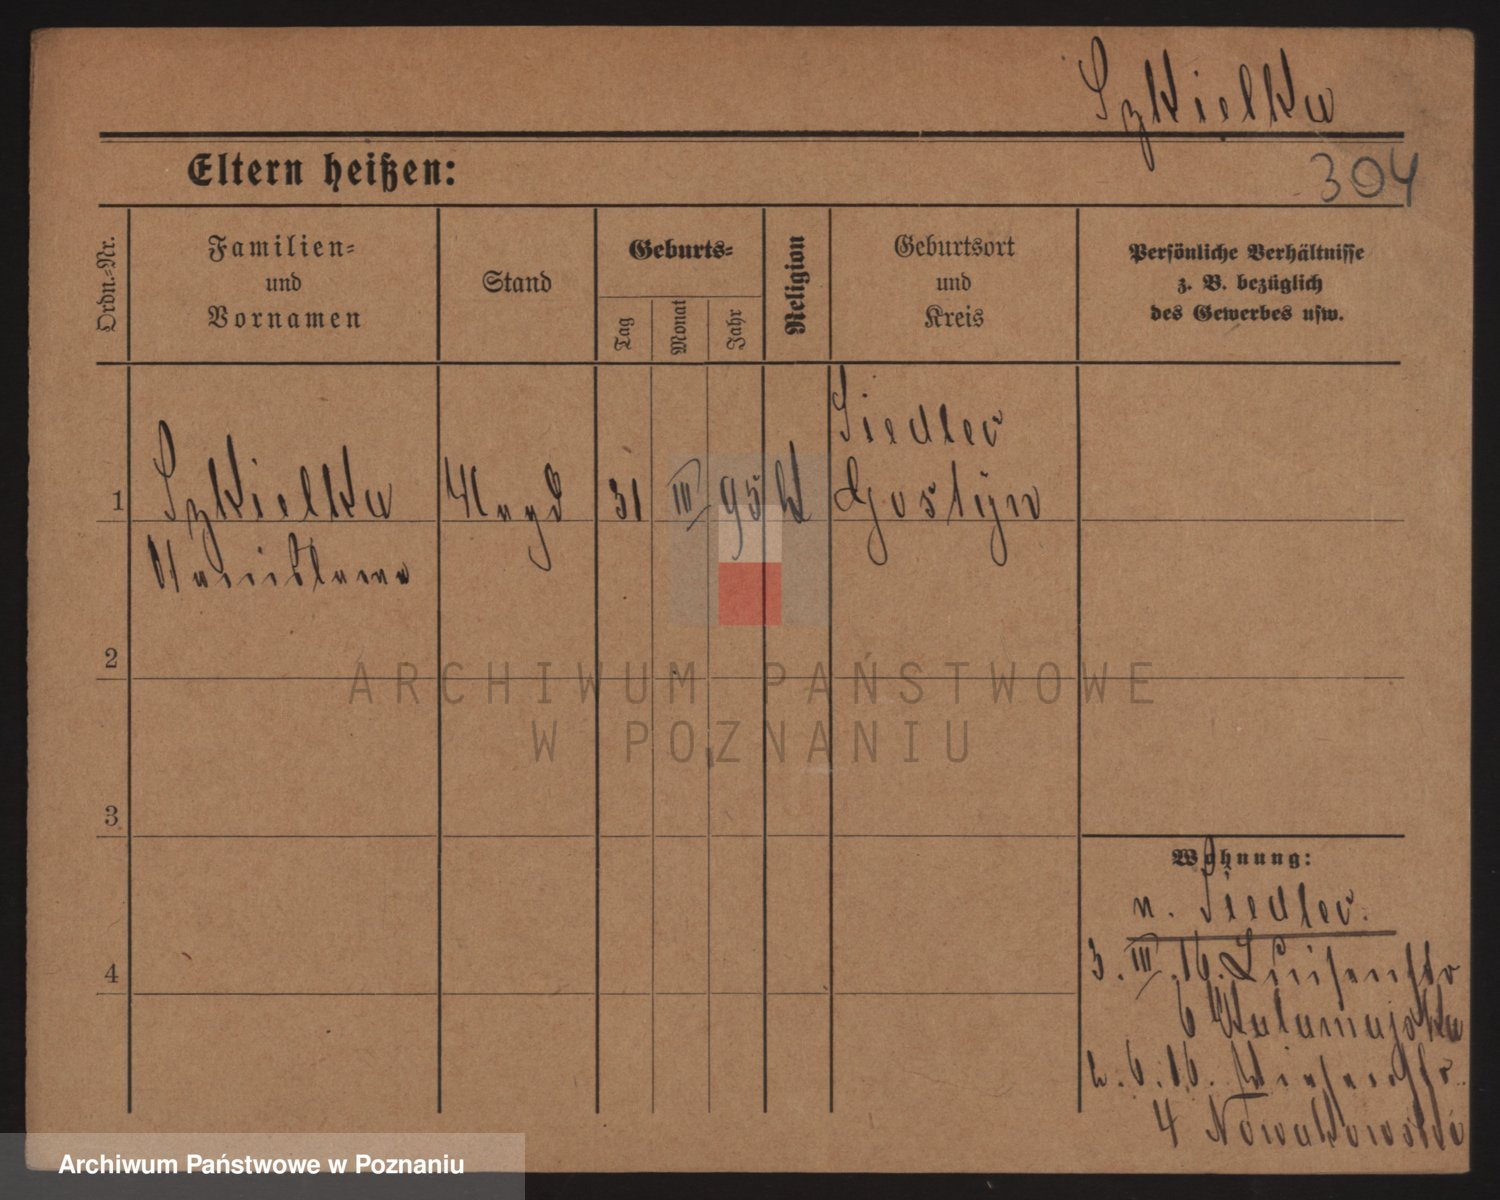 Szkielka
Eltern heißen:
304
Ordn.-Nr.
Familien-
und
Vornamen
Stand
Geburts-
Tag
Monat
Jahr
Religion
Geburtsort
und
Kreis
Persönliche Verhältnisse
z. B. bezüglich
des Gewerbes usw.
1
Szkielka
Magd
31
III
95
k
Siedlec
Gostyn
2
3
4
Wohnung:
n. Siedlec.
3. III. 16. Luisenstr
6
2. 6. 16. Wiesenstr.
4 Nowakowski
ARCHIWUM PAŃSTWOWE
W POZNANIU
Archiwum Państwowe w Poznaniu